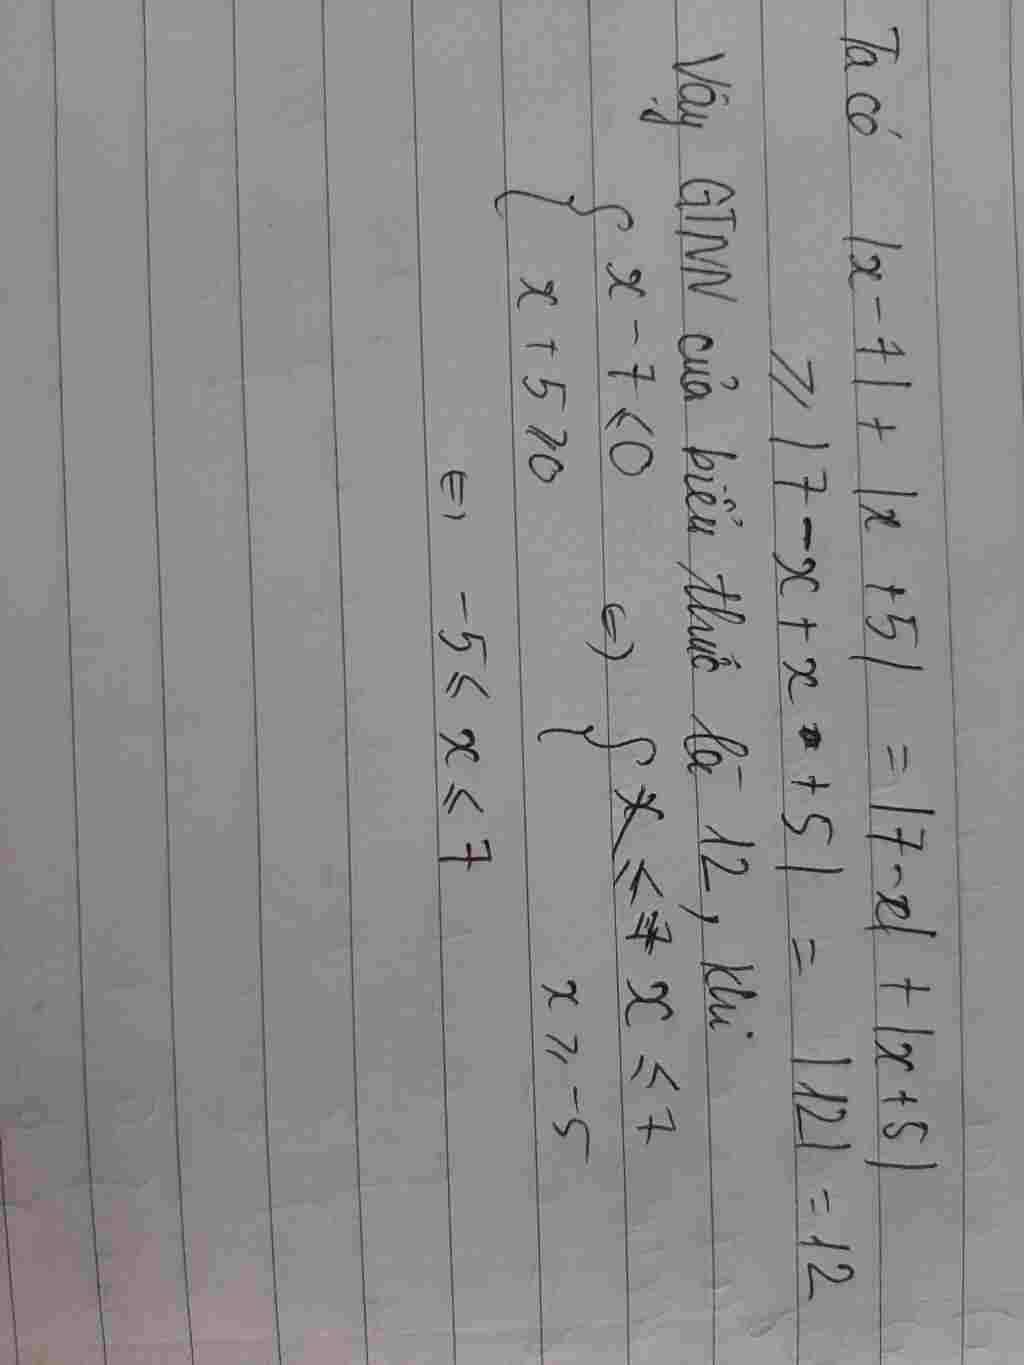 Ta có |x-7| + |x+5| = |7-x| + |x+5|
⩾ |7-x+x+5| = |12| = 12
Vậy GTNN của biểu thức là 12, khi
{ x-7 ⩽ 0 ⇔ { x ⩽ 7 x ⩽ 7
x+5 ⩾ 0 x ⩾ -5
⇔ -5 ⩽ x ⩽ 7